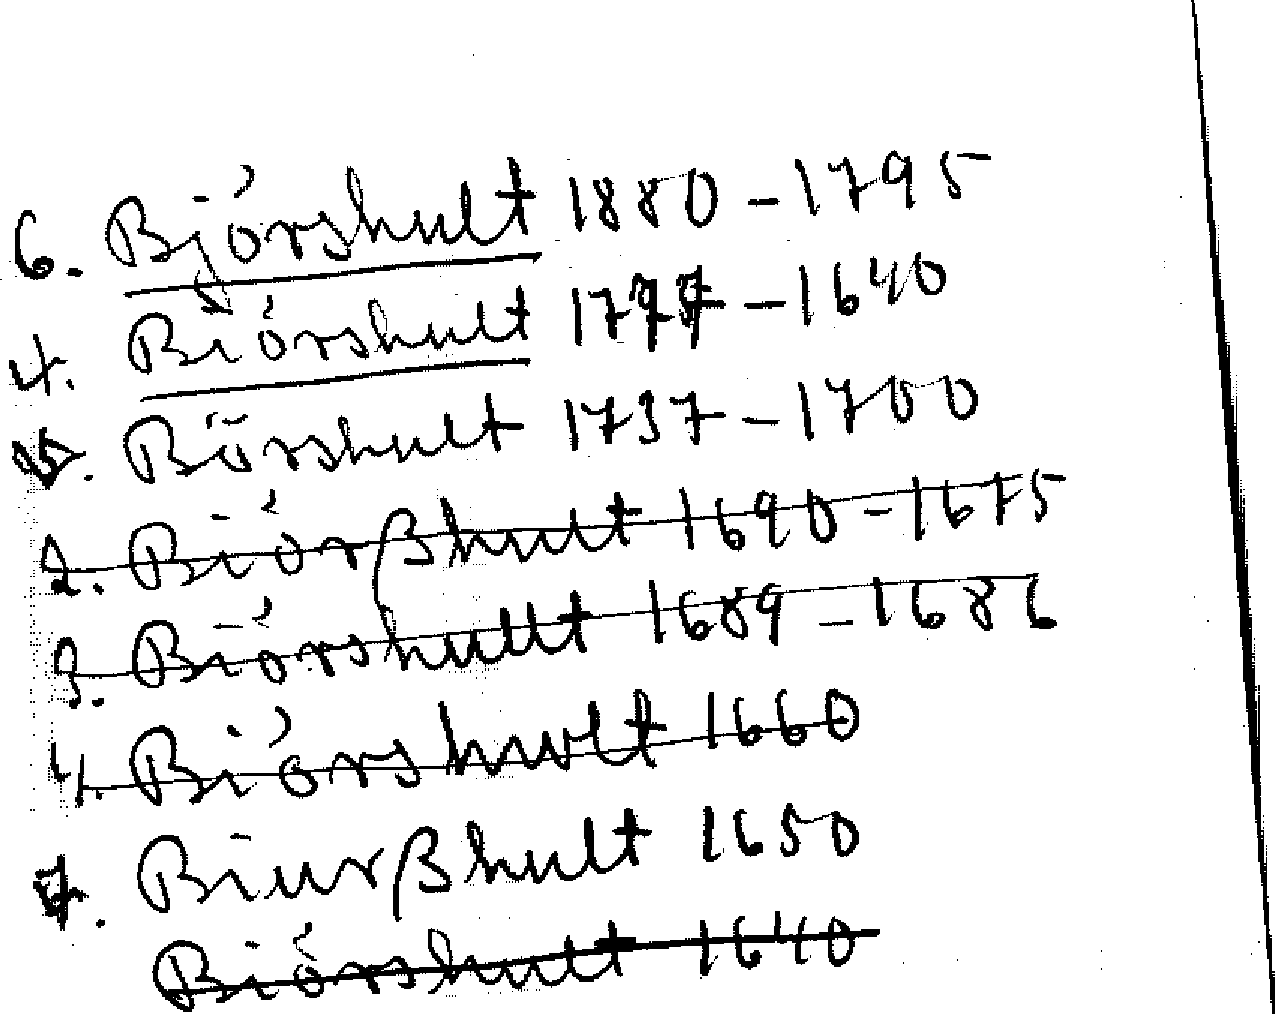 6. Björshult 1880 – 1795
4. Biörshult 1777 – 1640
5. Börshult 1737 – 1700
2. Biörßhult 1690 – 1675
3. Biörshullt 1689 – 1686
4. Biörshwlt 1660
7. Biurßhult 1650
Biörshult 1640